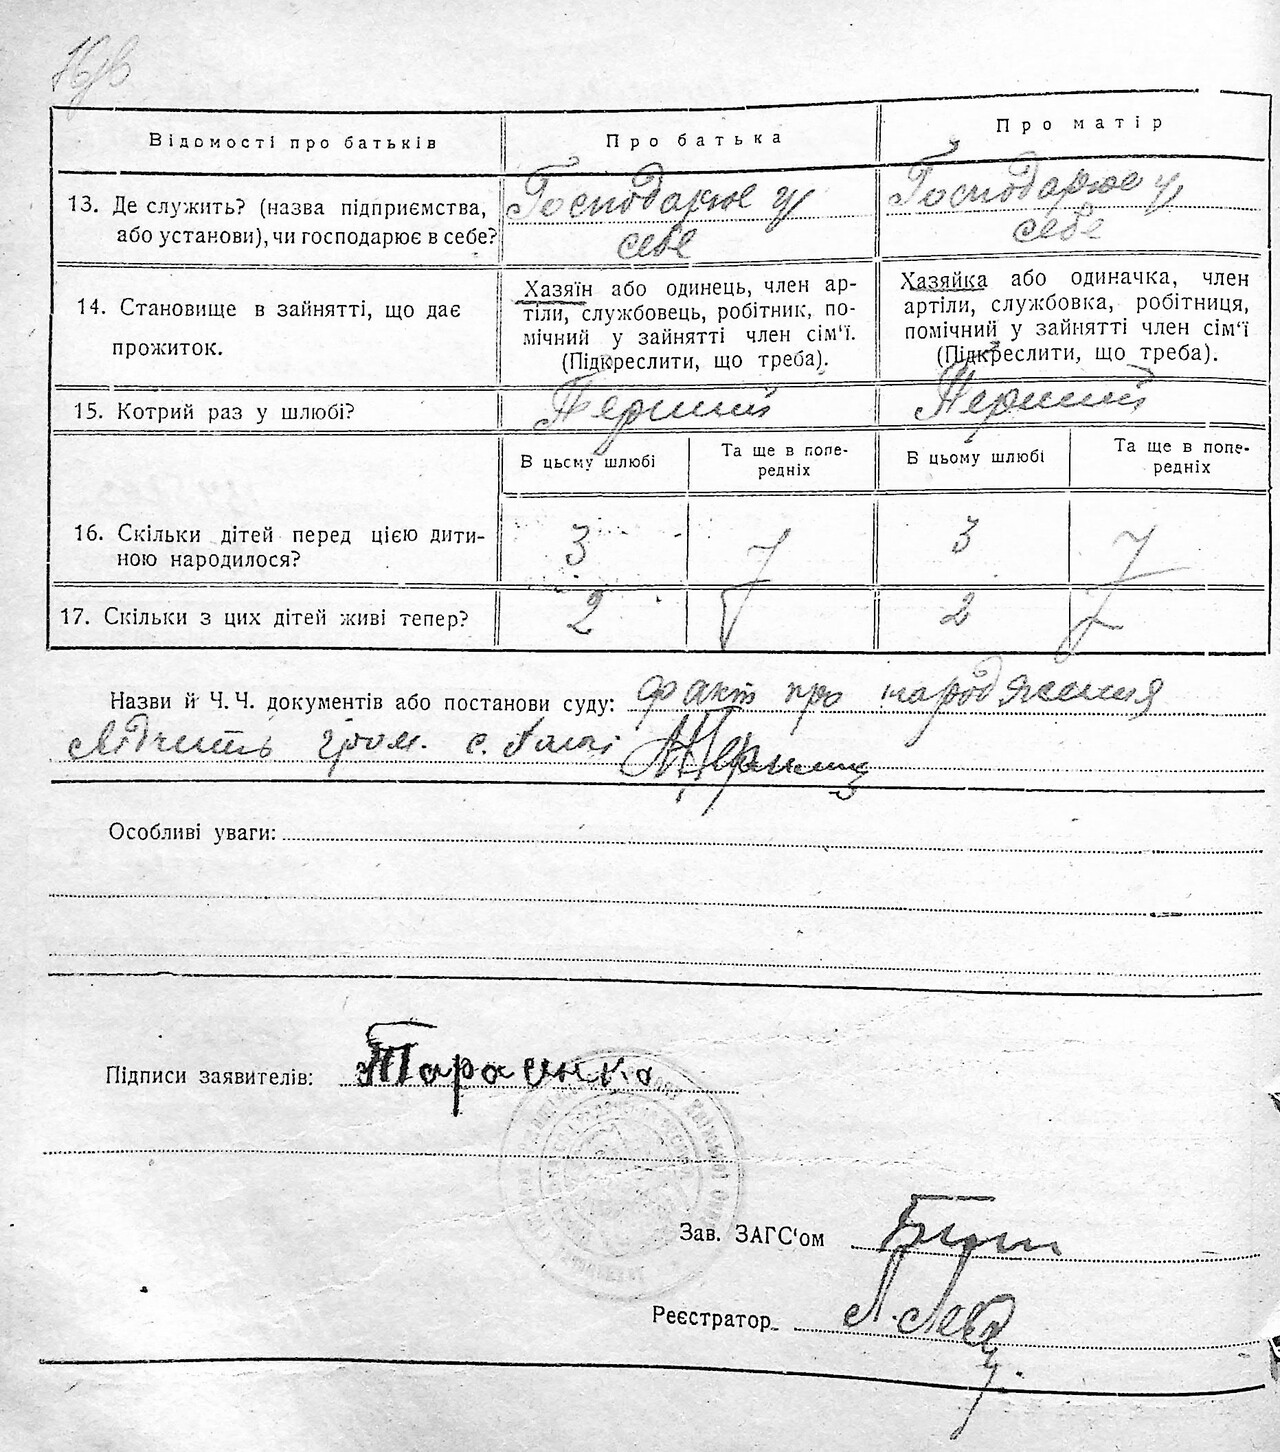 Відомості про батьків
Про батька
Про матір
13. Де служить? (назва підприємства,
або установи), чи господарює в себе?
Господарює у
себе
Господарює у
себе
14. Становище в зайнятті, що дає
прожиток.
Хазяїн або одинець, член ар-
тіли, службовець, робітник, по-
мічний у зайнятті член сім'ї.
(Підкреслити, що треба).
Хазяйка або одиначка, член
артіли, службовка, робітниця,
помічний у зайнятті член сім'ї
(Підкреслити, що треба).
15. Котрий раз у шлюбі?
Перший
Перший
В цьому шлюбі
Та ще в попе-
редніх
В цьому шлюбі
Та ще в попе-
редніх
16. Скільки дітей перед цією дити-
ною народилося?
3
3
17. Скільки з цих дітей живі тепер?
2
2
Назви й Ч. Ч. документів або постанови суду: факт про народження
гром. с.
Особливі уваги:
Підписи заявителів: Тарасенко
Зав. ЗАГС'ом
Реєстратор